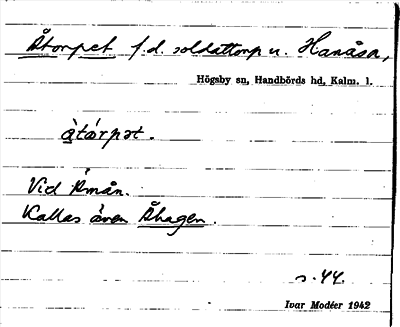 Åtorpet f.d. soldattorp u. Hanåsa,
Högsby sn, Handbörds hd, Kalm. l.
å̀tår̀pət.
Vid åmån.
Kallas även Åhagen.
s. 44.
Ivar Modéer 1942